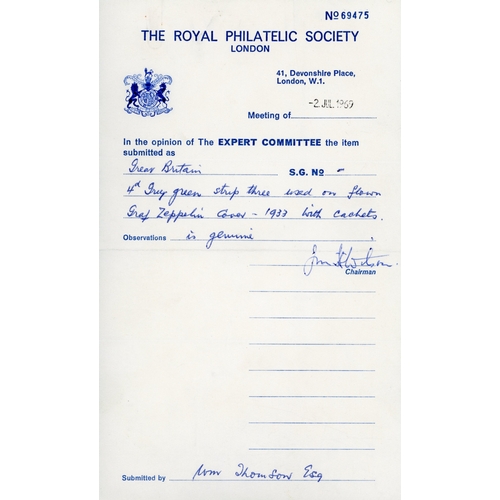 No 69475
THE ROYAL PHILATELIC SOCIETY
LONDON
41, Devonshire Place,
London, W.1.
Meeting of -2 JUL 1969
In the opinion of The EXPERT COMMITTEE the item
submitted as
Great Britain S.G. No -
4d Grey green strip three used on flown
Graf Zeppelin Cover - 1933 with cachets.
Observations is genuine
Chairman
Submitted by Wm Thomson Esq